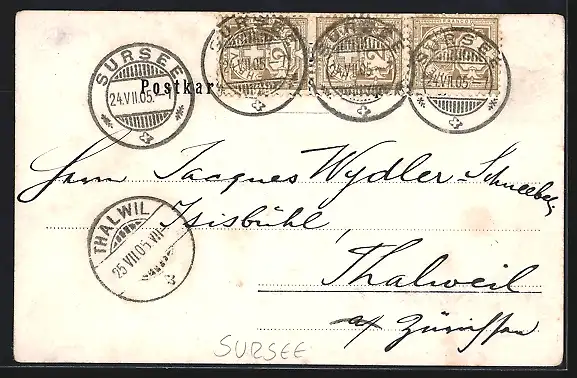 SURSEE SURSEE SURSEE SURSEE
24.VII.05. VII.05. 24.VII.05. 24.VII.05.
Postkar
Herrn Jacques Wydler-Schneebeli
Isisbühl,
THALWIL
25.VII.05.VII
Thalweil
a/ Zürichsee
SURSEE